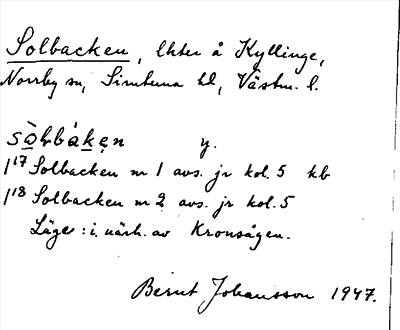 Solbacken, lhter å Kyllinge,
Norrby sn, Simtuna hd, Västm. l.
sòlbàken y.
1/17 Solbacken nr 1 avs. jr kol. 5 kb
1/18 Solbacken nr 2 avs. jr kol. 5
Läge: i närh. av Kronsågen.
Bernt Johansson 1947.